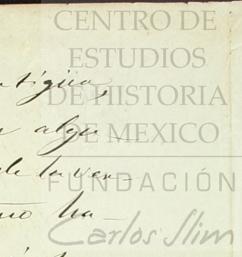 CENTRO DE
ESTUDIOS
DE HISTORIA
DE MEXICO
FUNDACIÓN
Carlos Slim
antigüa,
algu-
de la ver-
ha-